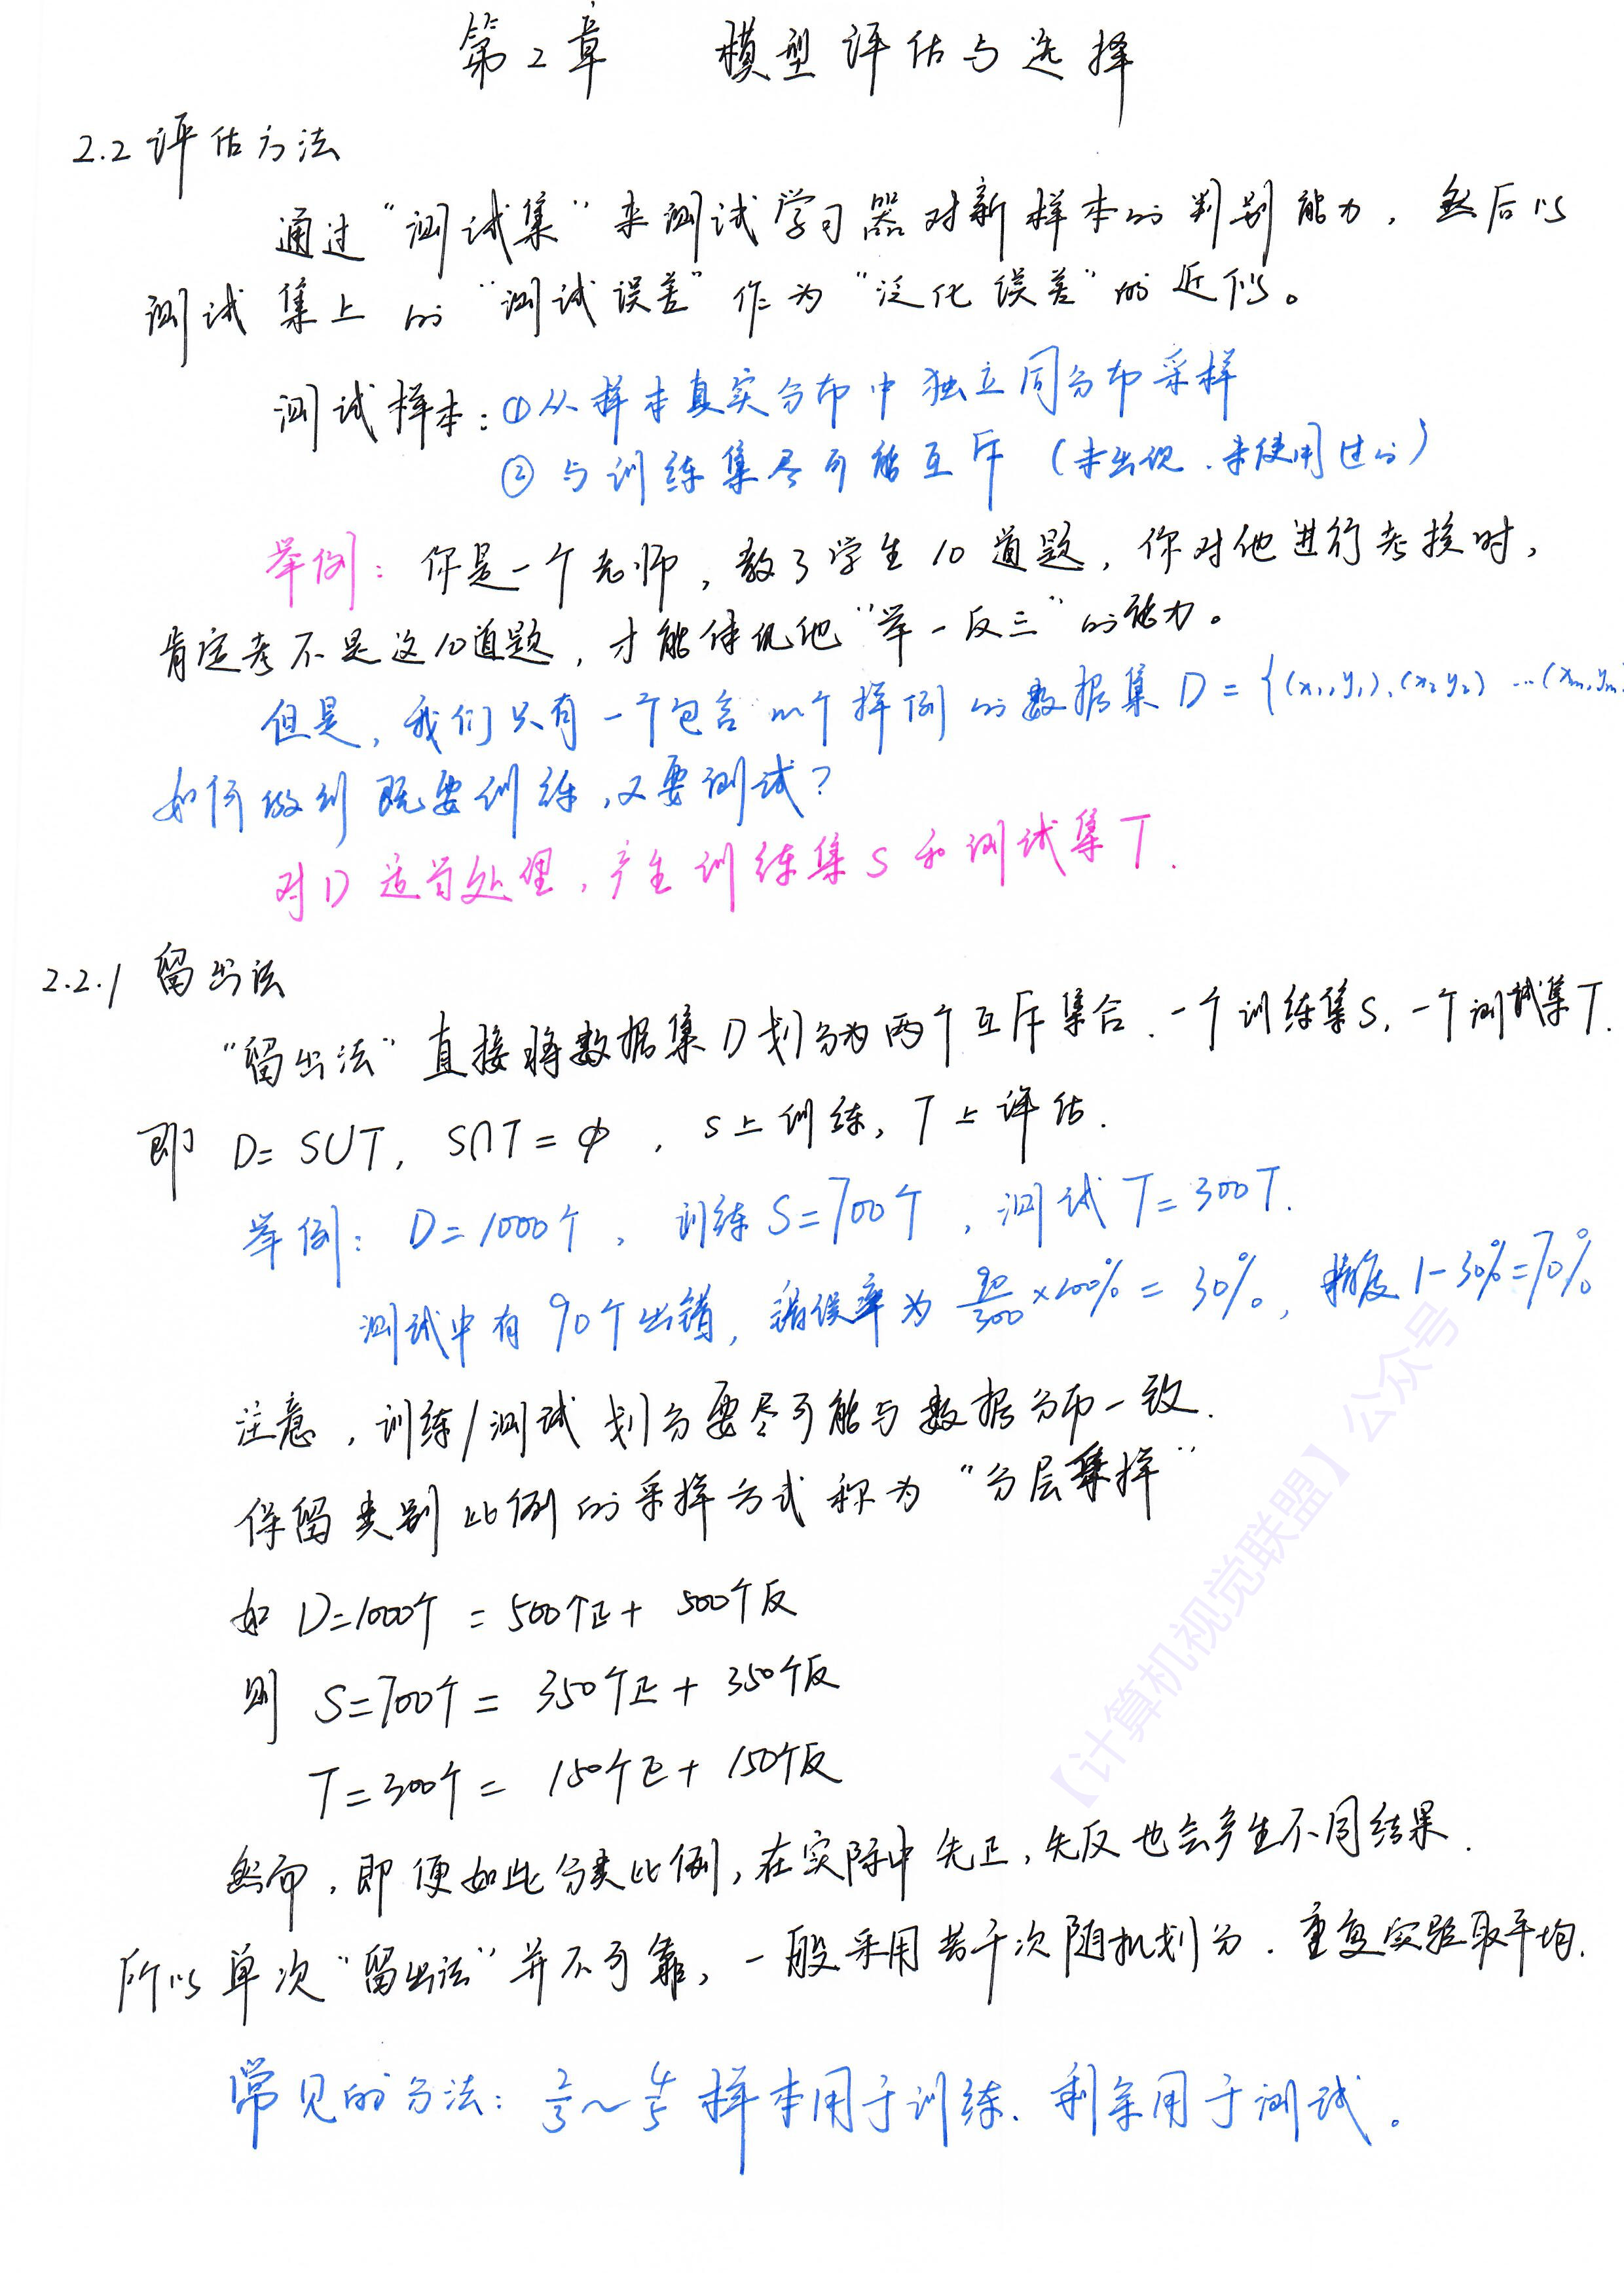 第2章 模型评估与选择
2.2 评估方法
通过“测试集”来测试学习器对新样本的判别能力，然后以
测试集上的“测试误差”作为“泛化误差”的近似。
测试样本：①从样本真实分布中独立同分布采样
②与训练集尽可能互斥（未出现、未使用过的）
举例：你是一个老师，教了学生10道题，你对他进行考核时，
肯定考不是这10道题，才能体现他“举一反三”的能力。
但是，我们只有一个包含m个样例的数据集D={(x₁,y₁),(x₂y₂) …(xₘ,yₘ
如何做到既要训练，又要测试？
对D适当处理，产生训练集S和测试集T.
2.2.1 留出法
“留出法”直接将数据集D划分为两个互斥集合、一个训练集S，一个测试集T.
即 D=S∪T, S∩T=∅，S上训练，T上评估.
举例：D=1000个，训练S=700个，测试T=300T.
测试中有90个出错，错误率为 90/300×100%=30%，精度1-30%=70%
注意，训练/测试划分要尽可能与数据分布一致.
保留类别比例的采样方式称为“分层采样”
如 D=1000个=500个正+500个反
则 S=700个=350个正+350个反
T=300个=150个正+150个反
然而，即便如此分类比例，在实际中先正，先反也会产生不同结果.
所以单次“留出法”并不可靠，一般采用若干次随机划分、重复实验取平均.
常见的方法：2/3～4/5样本用于训练、剩余用于测试。
【计算机视觉联盟】公众号